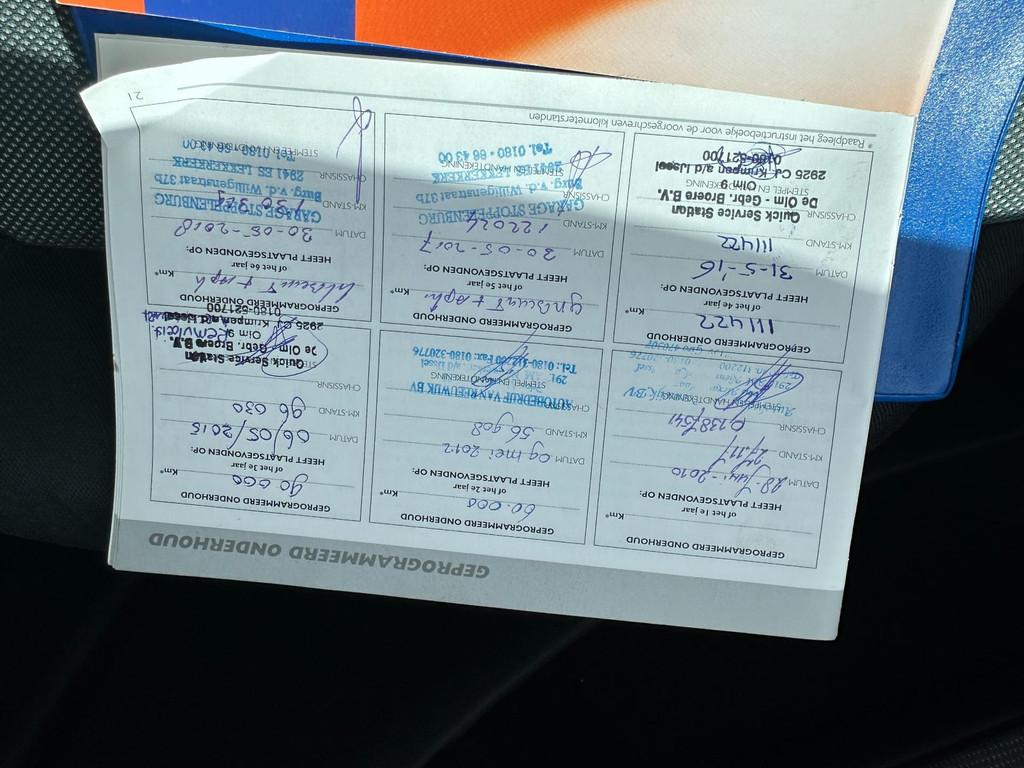 GEPROGRAMMEERD ONDERHOUD
GEPROGRAMMEERD ONDERHOUD
Km*
of het 1e jaar
HEEFT PLAATSGEVONDEN OP:
DATUM 28-Juni-2010
KM-STAND 27.117
CHASSISNR.
STEMPEL EN HANDTEKENING
GEPROGRAMMEERD ONDERHOUD
60.000 Km*
of het 2e jaar
HEEFT PLAATSGEVONDEN OP:
DATUM 09 mei 2012
KM-STAND 56 908
CHASSISNR.
AUTOBEDRIJF VAN REEUWIJK BV
STEMPEL EN HANDTEKENING
Tel.: 0180-312200 Fax: 0180-320776
GEPROGRAMMEERD ONDERHOUD
90 000 Km*
of het 3e jaar
HEEFT PLAATSGEVONDEN OP:
DATUM 06/05/2015
KM-STAND 96 030
CHASSISNR.
Quick Service Station
De Olm - Gebr. Broere B.V.
Olm 9
2925 CJ Krimpen a/d IJssel
0180-521700
GEPROGRAMMEERD ONDERHOUD
111422 Km*
of het 4e jaar
HEEFT PLAATSGEVONDEN OP:
DATUM 31-5-'16
KM-STAND 111422
CHASSISNR.
Quick Service Station
De Olm - Gebr. Broere B.V.
STEMPEL EN
Olm 9
2925 CJ Krimpen a/d IJssel
0180-521700
GEPROGRAMMEERD ONDERHOUD
Km*
of het 5e jaar
HEEFT PLAATSGEVONDEN OP:
DATUM 30-05-2017
KM-STAND
GARAGE STOPPELENBURG
CHASSISNR.
Burg. v.d. Willigenstraat 37b
2941 ES LEKKERKERK
STEMPEL EN HANDTEKENING
Tel. 0180 - 66 43 00
GEPROGRAMMEERD ONDERHOUD
Km*
of het 6e jaar
HEEFT PLAATSGEVONDEN OP:
DATUM 30-05-2018
KM-STAND
GARAGE STOPPELENBURG
CHASSISNR.
Burg. v.d. Willigenstraat 37b
2941 ES LEKKERKERK
STEMPEL EN HANDTEKENING
Tel. 0180 - 66 43 00
* Raadpleeg het instructieboekje voor de voorgeschreven kilometerstanden
21